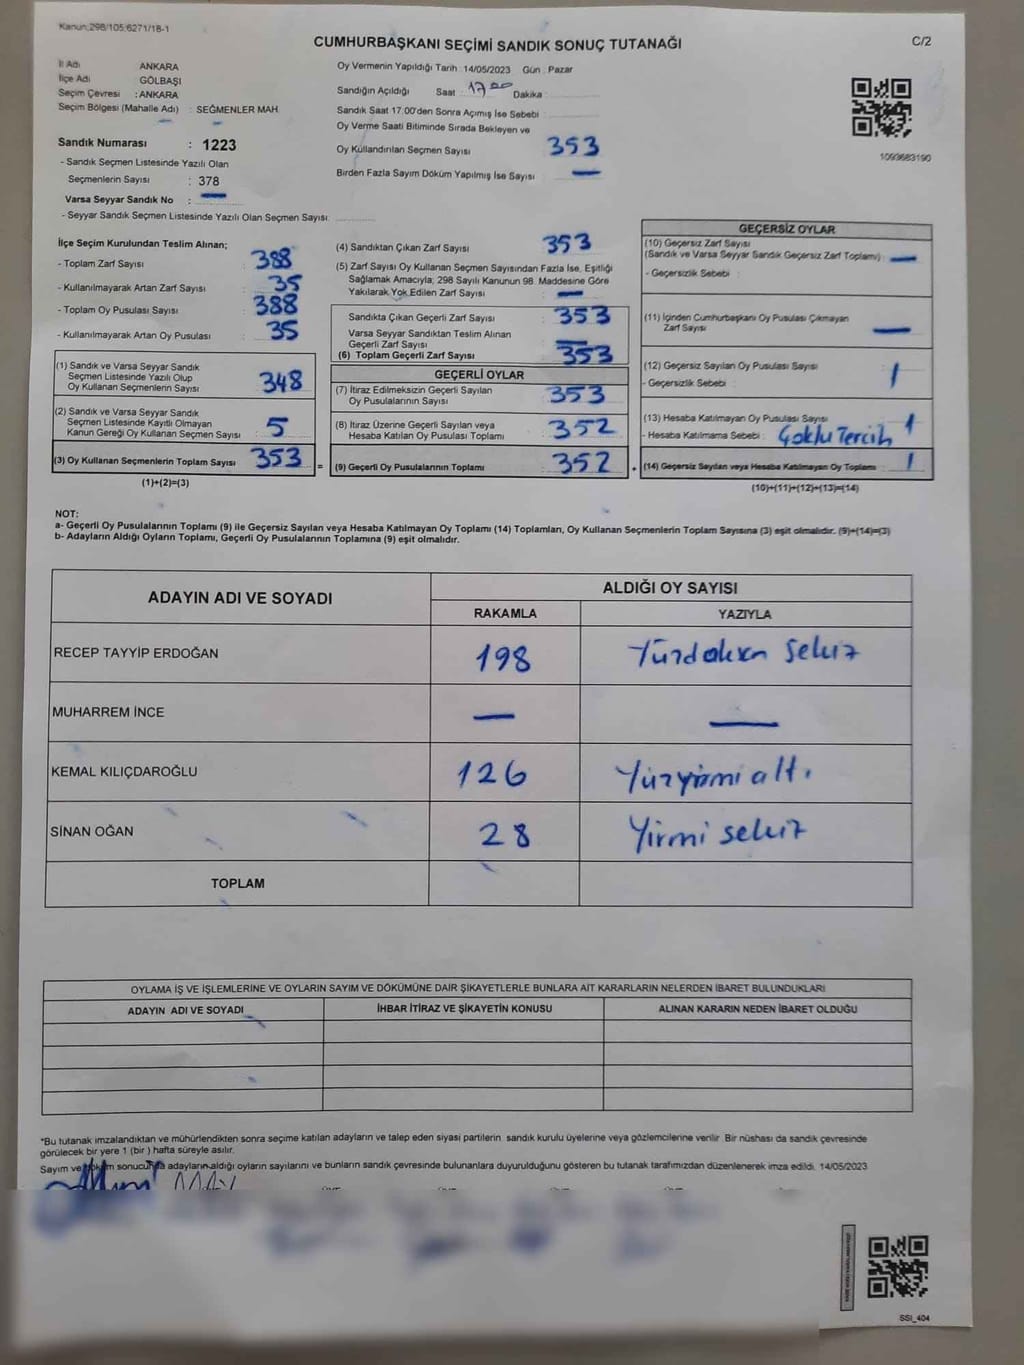 Kanun:298/105;6271/18-1
CUMHURBAŞKANI SEÇİMİ SANDIK SONUÇ TUTANAĞI
C/2
İl Adı ANKARA
İlçe Adı GÖLBAŞI
Seçim Çevresi : ANKARA
Seçim Bölgesi (Mahalle Adı) : SEĞMENLER MAH.
Sandık Numarası : 1223
- Sandık Seçmen Listesinde Yazılı Olan
Seçmenlerin Sayısı : 378
Varsa Seyyar Sandık No : —
- Seyyar Sandık Seçmen Listesinde Yazılı Olan Seçmen Sayısı:
Oy Vermenin Yapıldığı Tarih :14/05/2023 Gün : Pazar
Sandığın Açıldığı Saat : 17 00 Dakika :
Sandık Saat 17:00'den Sonra Açımış İse Sebebi :
Oy Verme Saati Bitiminde Sırada Bekleyen ve
Oy Kullandırılan Seçmen Sayısı : 353
Birden Fazla Sayım Döküm Yapılmış İse Sayısı : —
1093683190
İlçe Seçim Kurulundan Teslim Alınan;
- Toplam Zarf Sayısı : 388
- Kullanılmayarak Artan Zarf Sayısı : 35
- Toplam Oy Pusulası Sayısı : 388
- Kullanılmayarak Artan Oy Pusulası : 35
(1) Sandık ve Varsa Seyyar Sandık
Seçmen Listesinde Yazılı Olup
Oy Kullanan Seçmenlerin Sayısı : 348
(2) Sandık ve Varsa Seyyar Sandık
Seçmen Listesinde Kayıtlı Olmayan
Kanun Gereği Oy Kullanan Seçmen Sayısı : 5
(3) Oy Kullanan Seçmenlerin Toplam Sayısı : 353
(1)+(2)=(3)
(4) Sandıktan Çıkan Zarf Sayısı : 353
(5) Zarf Sayısı Oy Kullanan Seçmen Sayısından Fazla İse, Eşitliği
Sağlamak Amacıyla; 298 Sayılı Kanunun 98. Maddesine Göre
Yakılarak Yok Edilen Zarf Sayısı : —
Sandıkta Çıkan Geçerli Zarf Sayısı : 353
Varsa Seyyar Sandıktan Teslim Alınan
Geçerli Zarf Sayısı : —
(6) Toplam Geçerli Zarf Sayısı : 353
GEÇERLİ OYLAR
(7) İtiraz Edilmeksizin Geçerli Sayılan
Oy Pusulalarının Sayısı : 353
(8) İtiraz Üzerine Geçerli Sayılan veya
Hesaba Katılan Oy Pusulası Toplamı : 352
= (9) Geçerli Oy Pusulalarının Toplamı : 352 +
GEÇERSİZ OYLAR
(10) Geçersiz Zarf Sayısı
(Sandık ve Varsa Seyyar Sandık Geçersiz Zarf Toplamı) : —
- Geçersizlik Sebebi :
(11) İçinden Cumhurbaşkanı Oy Pusulası Çıkmayan
Zarf Sayısı : —
(12) Geçersiz Sayılan Oy Pusulası Sayısı : 1
- Geçersizlik Sebebi :
(13) Hesaba Katılmayan Oy Pusulası Sayısı : 1
- Hesaba Katılmama Sebebi : Çoklu Tercih
(14) Geçersiz Sayılan veya Hesaba Katılmayan Oy Toplamı : 1
(10)+(11)+(12)+(13)=(14)
NOT:
a- Geçerli Oy Pusulalarının Toplamı (9) ile Geçersiz Sayılan veya Hesaba Katılmayan Oy Toplamı (14) Toplamları, Oy Kullanan Seçmenlerin Toplam Sayısına (3) eşit olmalıdır. (9)+(14)=(3)
b- Adayların Aldığı Oyların Toplamı, Geçerli Oy Pusulalarının Toplamına (9) eşit olmalıdır.
ADAYIN ADI VE SOYADI
ALDIĞI OY SAYISI
RAKAMLA YAZIYLA
RECEP TAYYİP ERDOĞAN 198 Yüzdoksan sekiz
MUHARREM İNCE — —
KEMAL KILIÇDAROĞLU 126 Yüzyirmi altı.
SİNAN OĞAN 28 Yirmi sekiz
TOPLAM
OYLAMA İŞ VE İŞLEMLERİNE VE OYLARIN SAYIM VE DÖKÜMÜNE DAİR ŞİKAYETLERLE BUNLARA AİT KARARLARIN NELERDEN İBARET BULUNDUKLARI
ADAYIN ADI VE SOYADI İHBAR İTİRAZ VE ŞİKAYETİN KONUSU ALINAN KARARIN NEDEN İBARET OLDUĞU
*Bu tutanak imzalandıktan ve mühürlendikten sonra seçime katılan adayların ve talep eden siyasi partilerin sandık kurulu üyelerine veya gözlemcilerine verilir. Bir nüshası da sandık çevresinde
görülecek bir yere 1 (bir) hafta süreyle asılır.
Sayım ve döküm sonucunda adayların aldığı oyların sayılarını ve bunların sandık çevresinde bulunanlara duyurulduğunu gösteren bu tutanak tarafımızdan düzenlenerek imza edildi. 14/05/2023
SSI_404